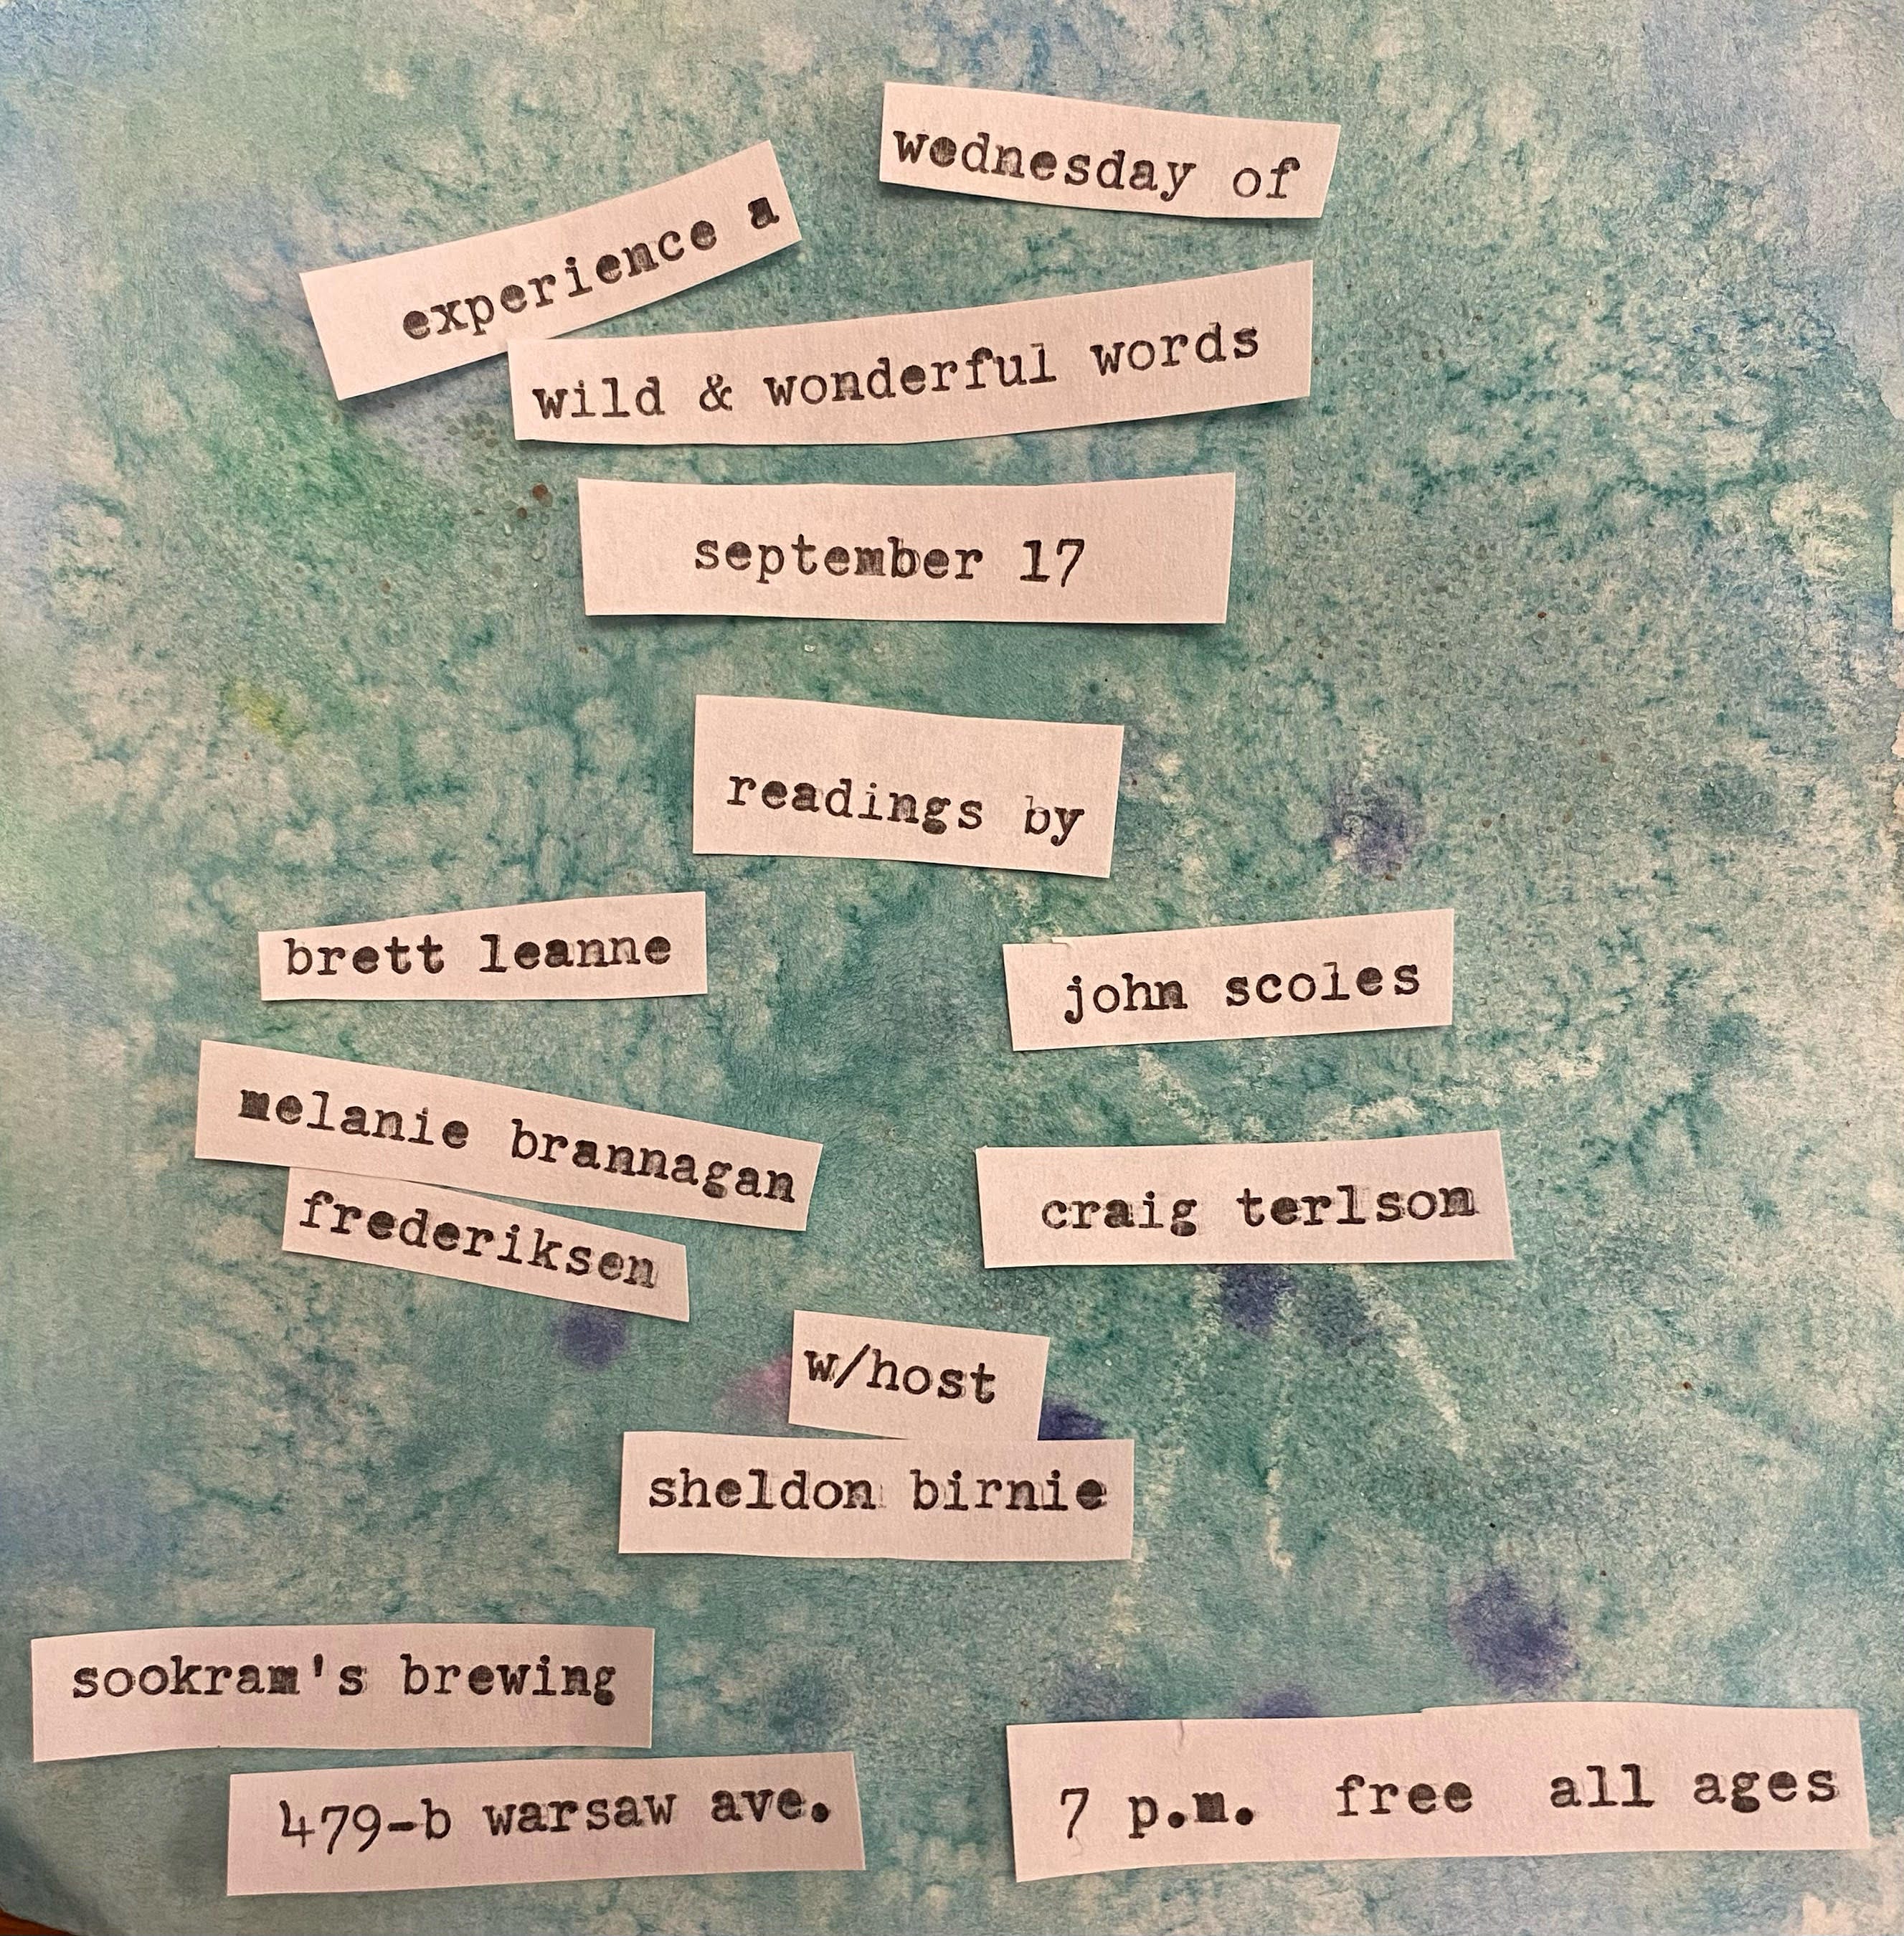 experience a
wednesday of
wild & wonderful words
september 17
readings by
brett leanne
john scoles
melanie brannagan
frederiksen
craig terlson
w/host
sheldon birnie
sookram's brewing
479-b warsaw ave.
7 p.m. free all ages